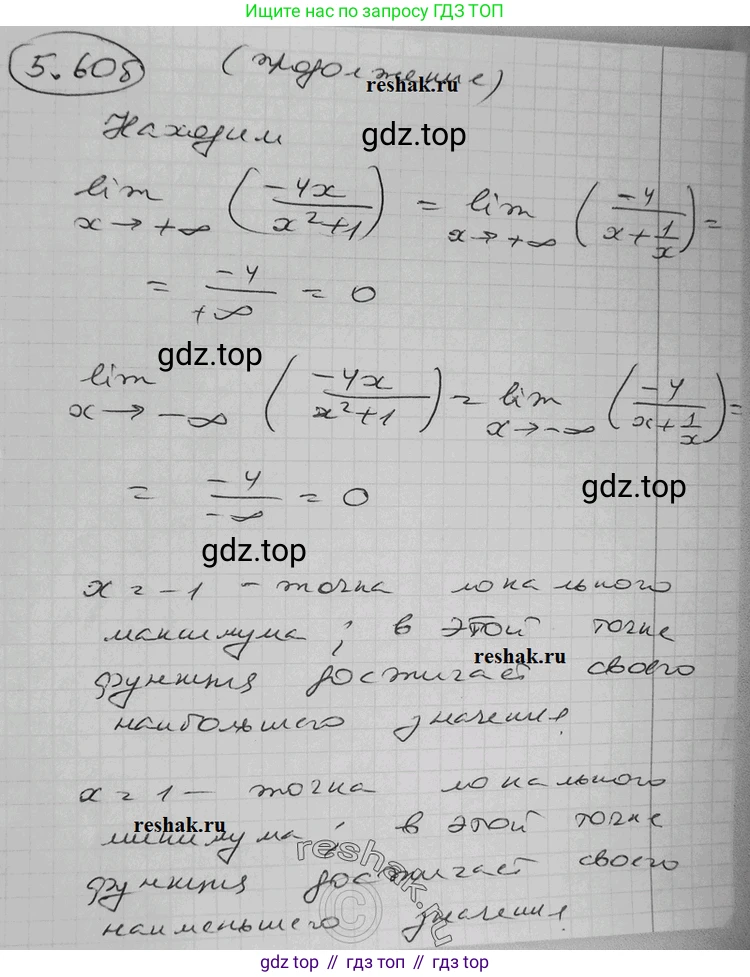 Ищите нас по запросу ГДЗ ТОП
5.608 (продолжение)
reshak.ru
Находим
gdz.top
lim x→+∞ (-4x / x²+1) = lim x→+∞ (-4 / x + 1/x) =
= -4 / +∞ = 0
gdz.top
lim x→-∞ (-4x / x²+1) = lim x→-∞ (-4 / x + 1/x) =
= -4 / -∞ = 0
gdz.top
gdz.top
x = -1 - точка локального
максимума; в этой точке
reshak.ru
функция достигает своего
наибольшего значения.
x = 1 - точка локального
reshak.ru
минимума; в этой точке
reshak.ru
функция достигает своего
наименьшего значения.
©
gdz.top // gdz.top // gdz.top // gdz.top